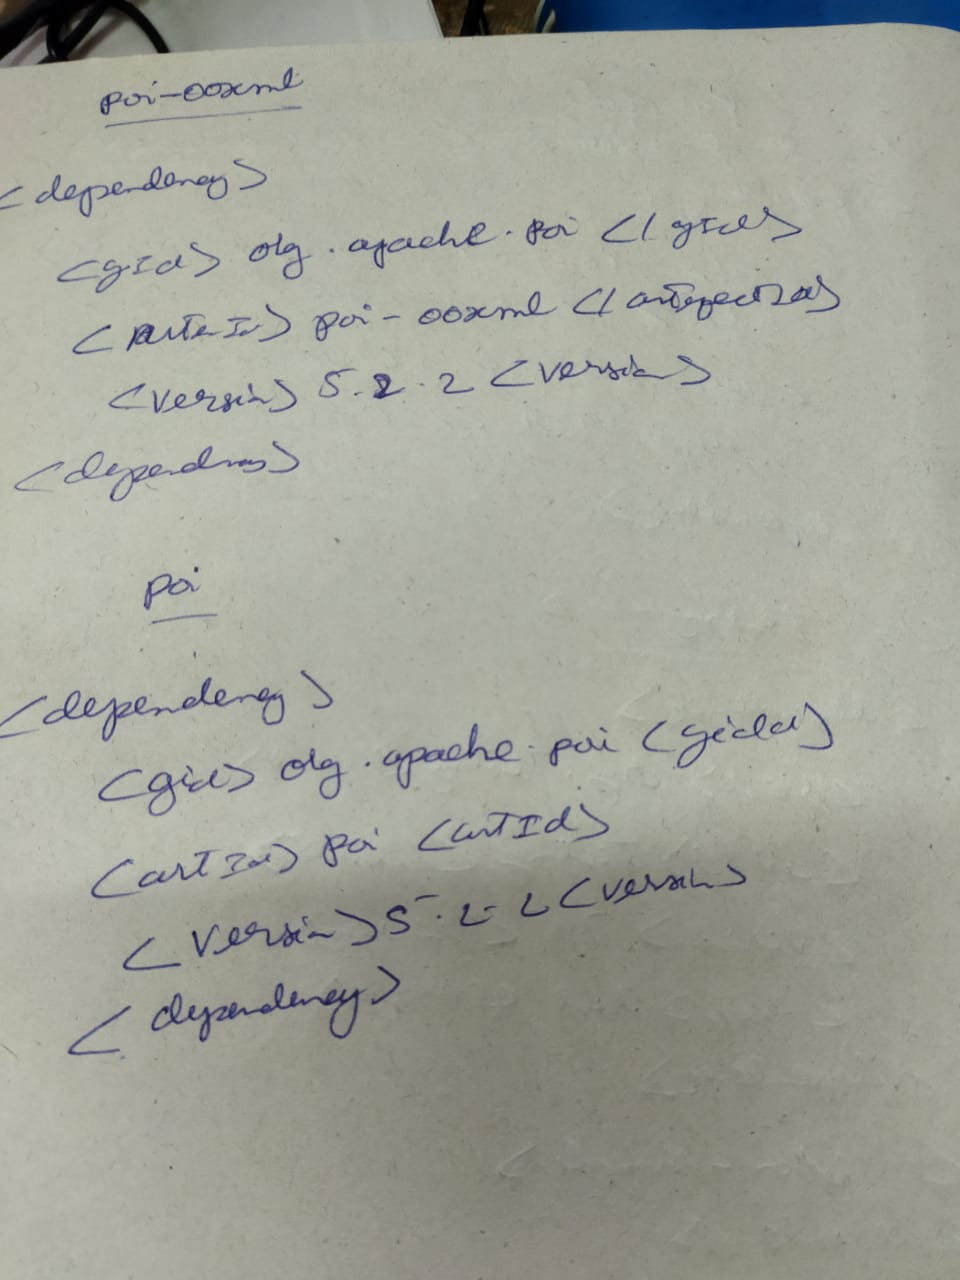 poi-ooxml
<dependency>
<gId> org.apache.poi </gId>
<artId> poi-ooxml </artefactId>
<version> 5.2.2 <version>
<dependency>
poi
<dependency>
<gid> org.apache.poi <gidd>
<artId> poi <artId>
<version> 5.2.2 <version>
<dependency>